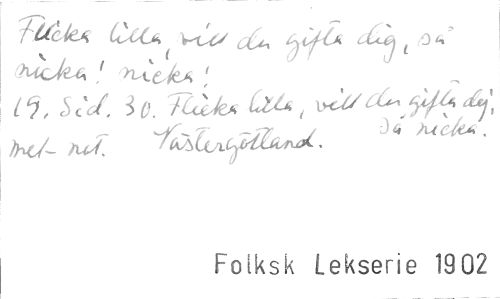 Flicka lilla, vill du gifta dig, så
nicka! nicka!
19. Sid. 30. Flicka lilla, vill du gifta dig,
så nicka.
met- not. Västergötland.
Folksk Lekserie 1902